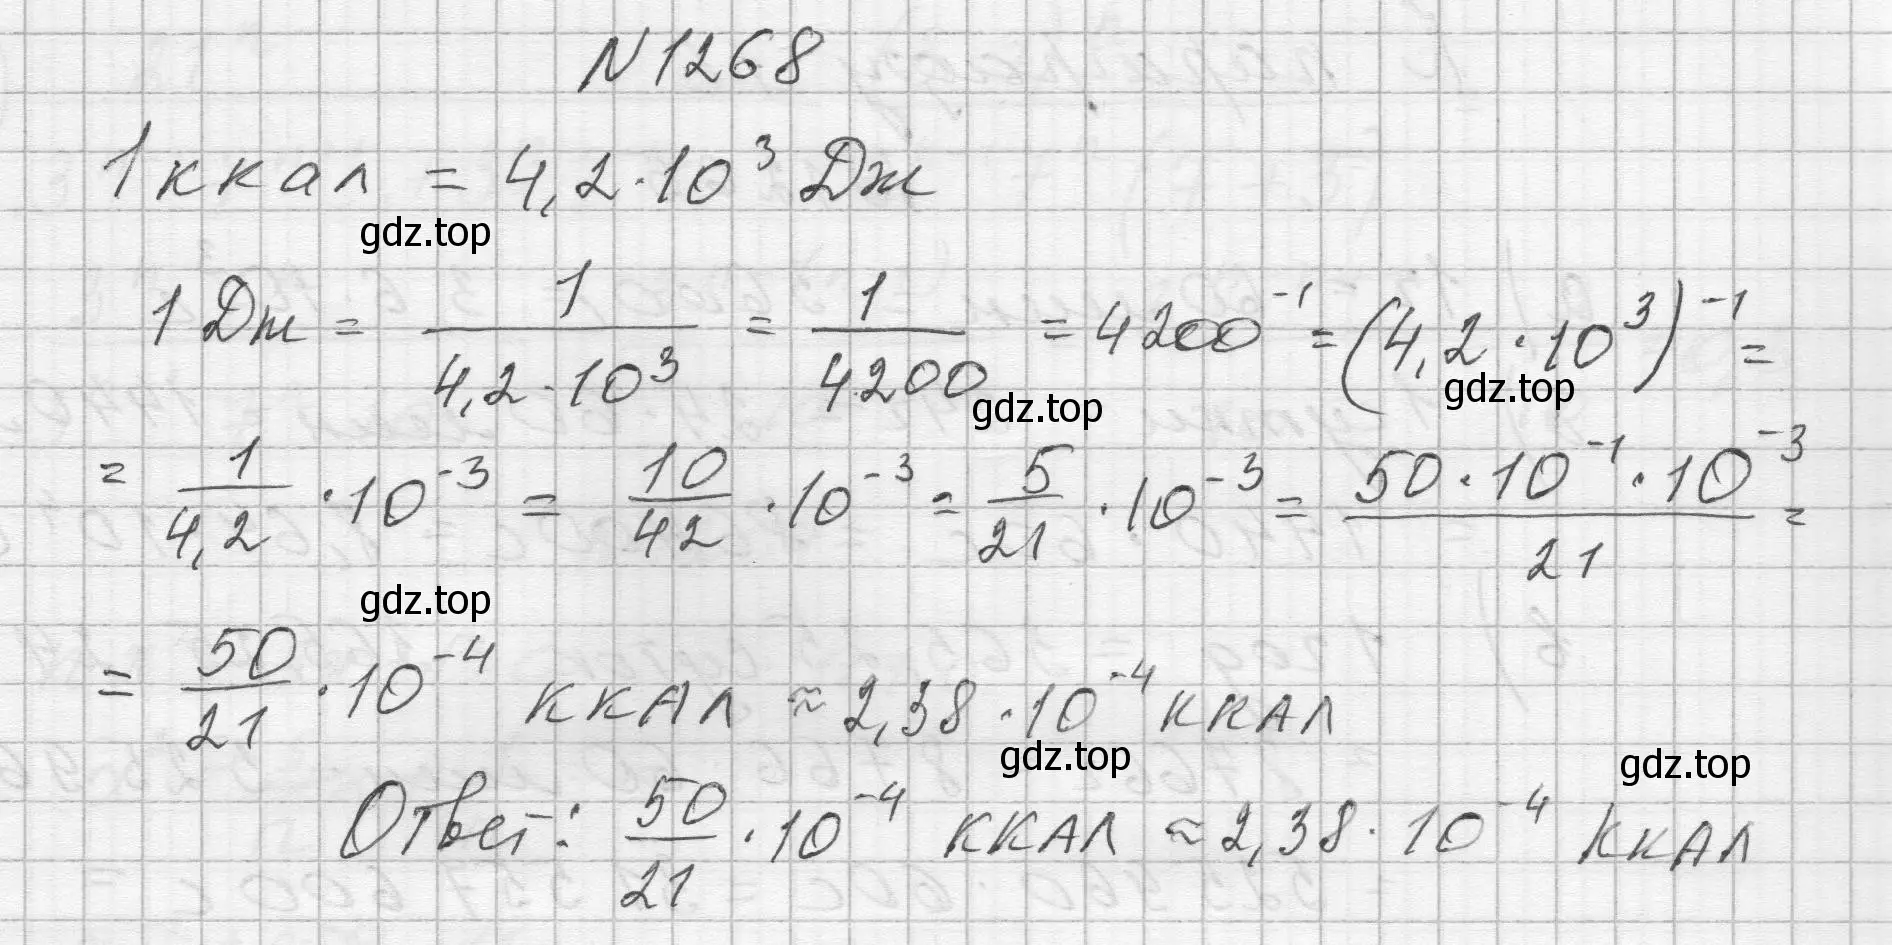 N 1268
1 ккал = 4,2 · 10³ Дж
gdz.top
1 Дж = 1/(4,2 · 10³) = 1/4200 = 4200⁻¹ = (4,2 · 10³)⁻¹ =
gdz.top gdz.top
= 1/4,2 · 10⁻³ = 10/42 · 10⁻³ = 5/21 · 10⁻³ = (50 · 10⁻¹ · 10⁻³)/21 =
gdz.top
= 50/21 · 10⁻⁴ ккал ≈ 2,38 · 10⁻⁴ ккал
gdz.top gdz.top
Ответ: 50/21 · 10⁻⁴ ккал ≈ 2,38 · 10⁻⁴ ккал